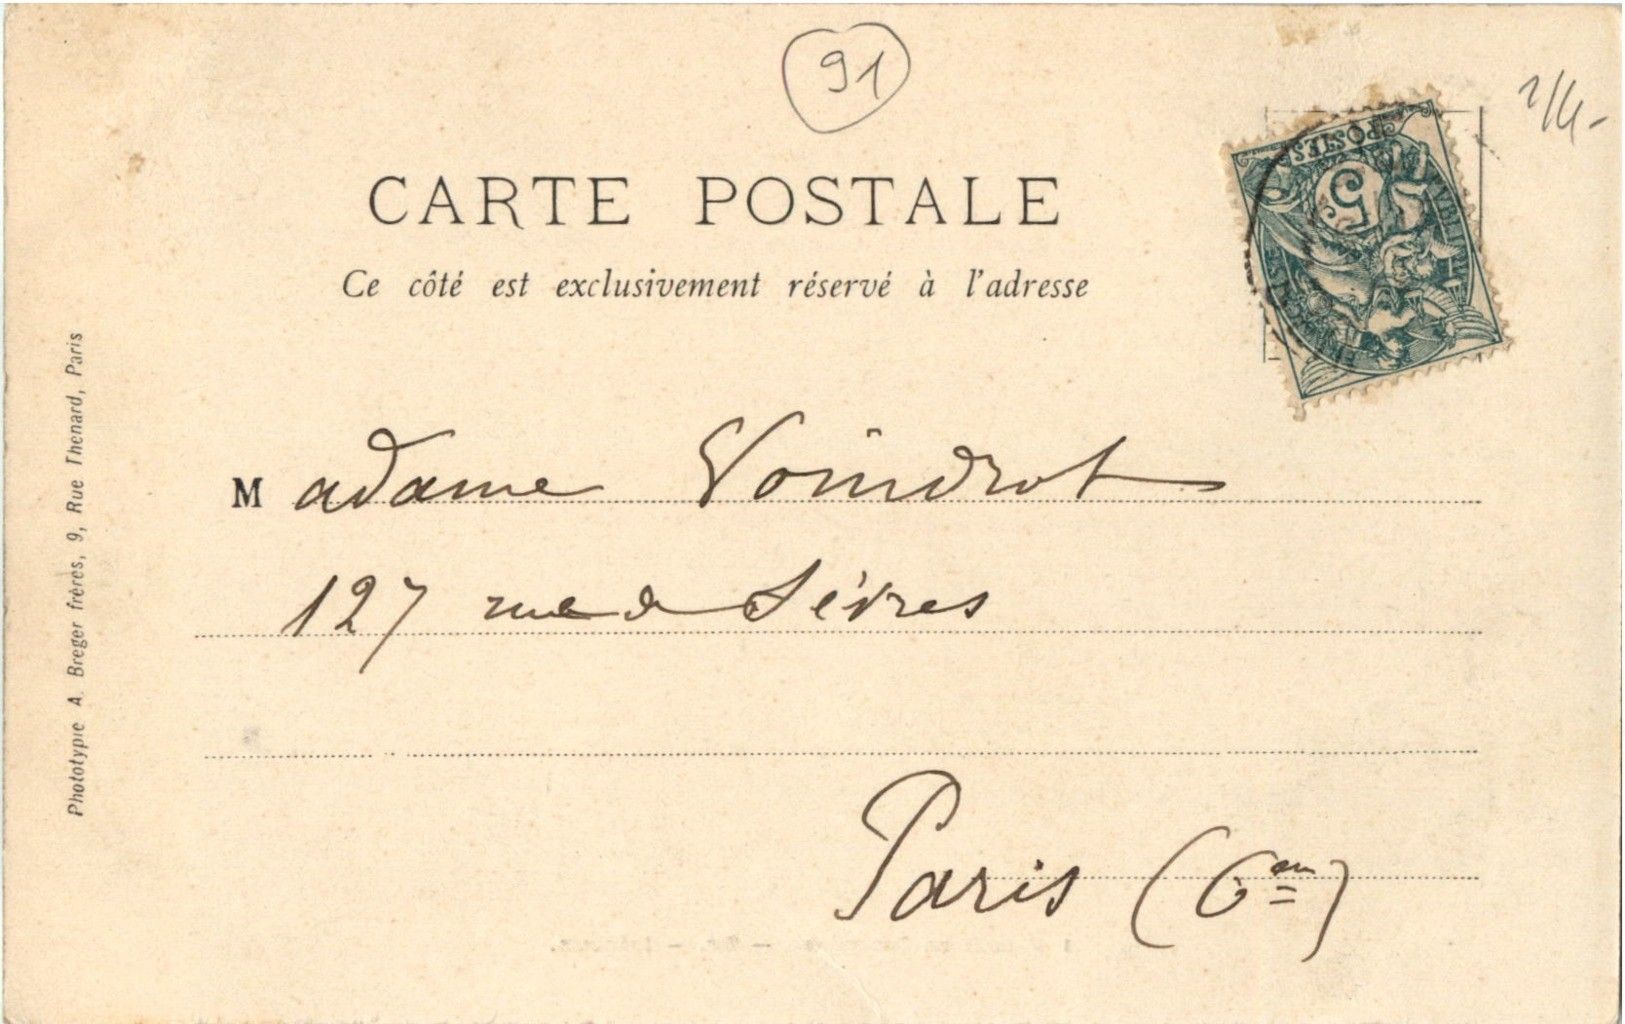 91
CARTE POSTALE
Ce côté est exclusivement réservé à l'adresse
POSTES
5
Madame Voindrot
127 rue de Sèvres
Paris (6em)
Phototypie A. Breger frères, 9, Rue Thenard, Paris